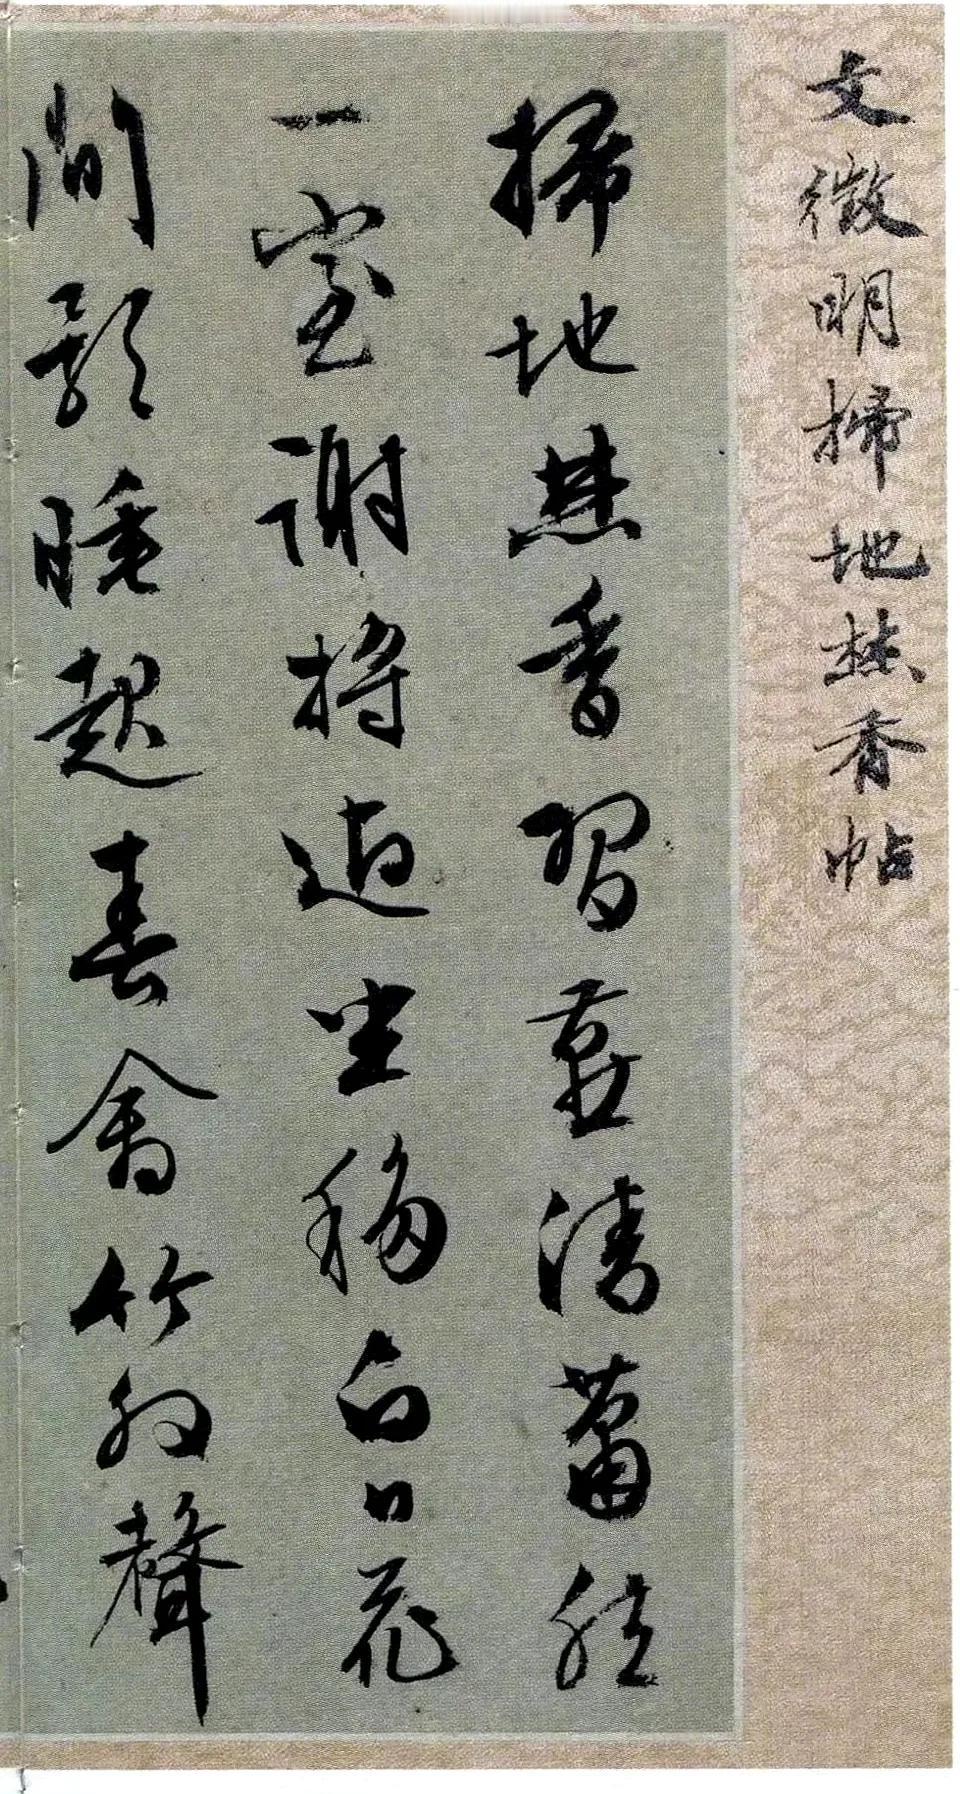 文徵明掃地焚香帖
掃地焚香習燕清蕭然
一室謝將迎坐移白日花
間影睡起春禽竹外聲